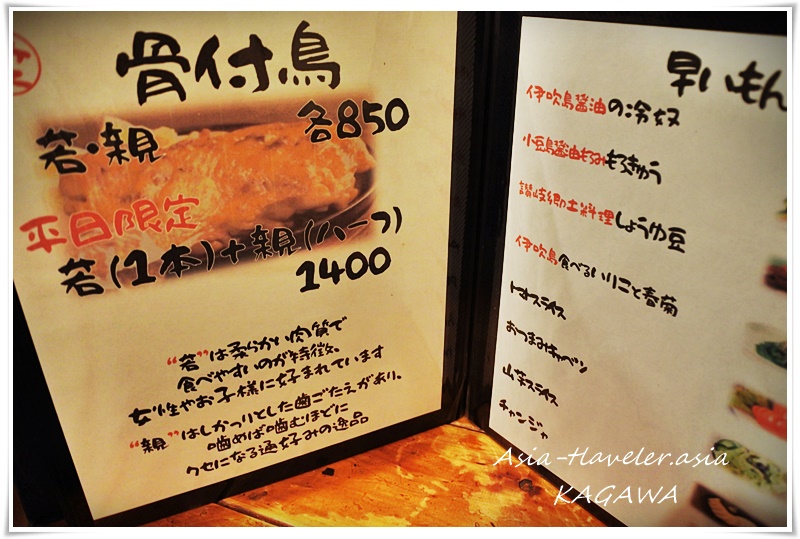 骨付鳥
若・親 各850
平日限定
若(1本)+親(ハーフ)
1400
“若”は柔らかい肉質で
食べやすいのが特徴。
女性やお子様に好まれています
“親”はしっかりとした歯ごたえがあり、
噛めば噛むほどに
クセになる通好みの逸品
早いもん
伊吹島醤油の冷奴
小豆島醤油もろみもろきゅう
讃岐郷土料理しょうゆ豆
伊吹島食べるいりこと春菊
トマトスライス
おつまみキャベツ
山芋スライス
チャンジャ
Asia-traveler.asia
KAGAWA